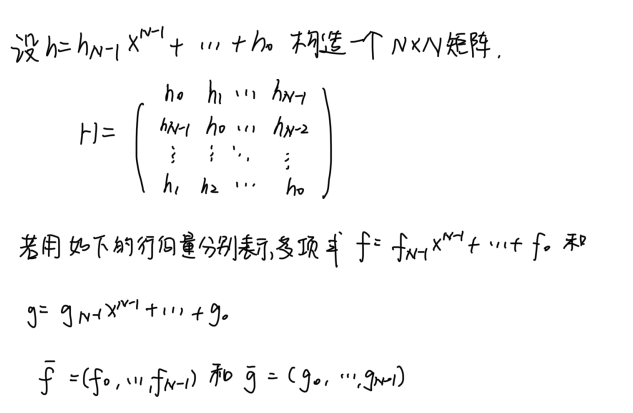 设 h=h_{N-1} x^{N-1} + ⋯ + h_0 构造一个 N×N矩阵.
H= ( h_0 h_1 ⋯ h_{N-1}
h_{N-1} h_0 ⋯ h_{N-2}
⋮ ⋮ ⋱ ⋮
h_1 h_2 ⋯ h_0 )
若用如下的行向量分别表示多项式 f= f_{N-1}x^{N-1}+⋯+f_0 和
g= g_{N-1}x^{N-1}+⋯+g_0
f̄ =(f_0,⋯,f_{N-1}) 和 ḡ =(g_0,⋯,g_{N-1})